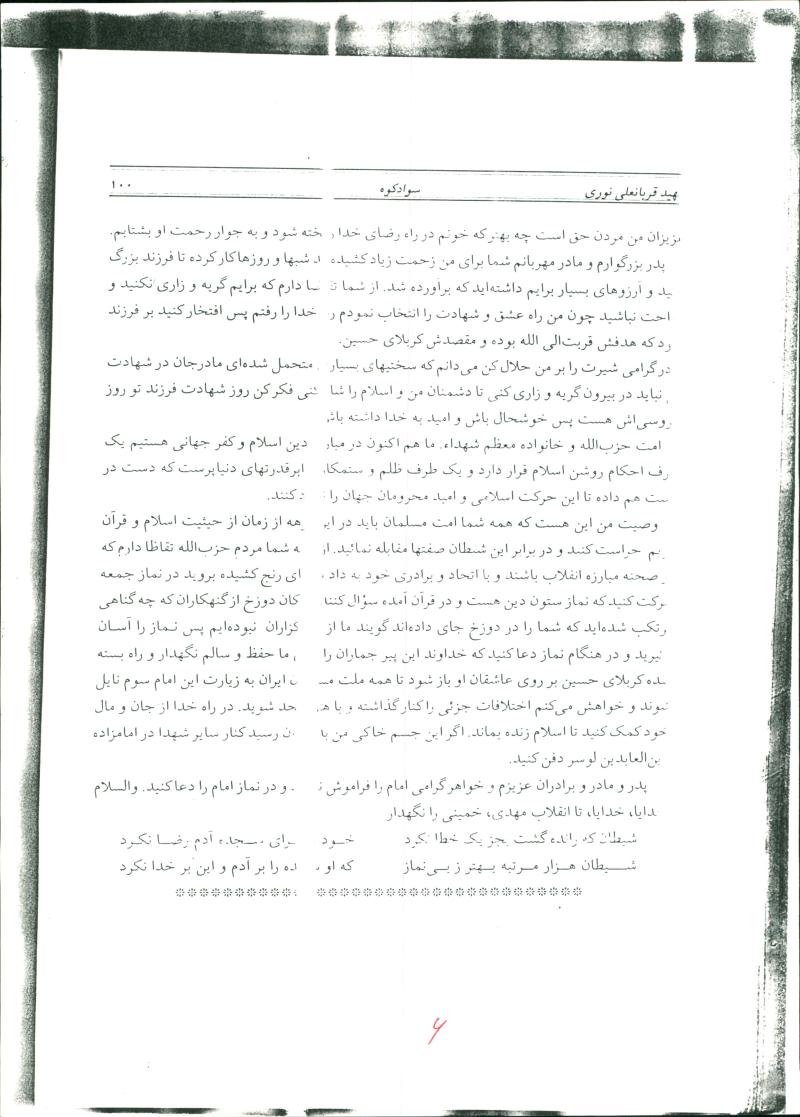 هید قربانعلی نوری سوادکوه ۱۰۰
زیزان من مردن حق است چه بهتر که خونم در راه رضای خدا خته شود و به جوار رحمت او بشتابم.
پدر بزرگوارم و مادر مهربانم شما برای من زحمت زیاد کشیده د شبها و روزها کار کرده تا فرزند بزرگ
ید و آرزوهای بسیار برایم داشته‌اید که برآورده شد. از شما تـ ـا دارم که برایم گریه و زاری نکنید و
احت نباشید چون من راه عشق و شهادت را انتخاب نمودم ر خدا را رفتم پس افتخار کنید بر فرزند
ود که هدفش قربت‌الی الله بوده و مقصدش کربلای حسین.
در گرامی شیرت را بر من حلال کن می‌دانم که سختیهای بسیار متحمل شده‌ای مادرجان در شهادت
نباید در بیرون گریه و زاری کنی تا دشمنان من و اسلام را شا ـنی فکر کن روز شهادت فرزند تو روز
روسی‌اش هست پس خوشحال باش و امید به خدا داشته باش
امت حزب‌الله و خانواده معظم شهداء. ما هم اکنون در مبار دین اسلام و کفر جهانی هستیم یک
رف احکام روشن اسلام قرار دارد و یک طرف ظلم و ستمکا ابرقدرتهای دنیاپرست که دست در
ست هم داده تا این حرکت اسلامی و امید محرومان جهان را د کنند.
وصیت من این هست که همه شما امت مسلمان باید در ایـ رهه از زمان از حیثیت اسلام و قرآن
یم حراست کنید و در برابر این شیطان صفتها مقابله نمائید. از ه شما مردم حزب‌الله تقاظا دارم که
ر صحنه مبارزه انقلاب باشند و با اتحاد و برادری خود به داد ای رنج کشیده بروید در نماز جمعه
رکت کنید که نماز ستون دین هست و در قرآن آمده سؤال کنند کان دوزخ از گنهکاران که چه گناهی
رتکب شده‌اید که شما را در دوزخ جای داده‌اند گویند ما از کزاران نبوده‌ایم پس نماز را آسان
گیرید و در هنگام نماز دعا کنید که خداوند این پیر جماران را ما حفظ و سالم نگهدار و راه بسته
شده کربلای حسین بر روی عاشقان او باز شود تا همه ملت مسـ ایران به زیارت این امام سوم نایل
شوند و خواهش می‌کنم اختلافات جزئی را کنار گذاشته و با هـ حد شوید. در راه خدا از جان و مال
خود کمک کنید تا اسلام زنده بماند. اگر این جسم خاکی من با ن رسید کنار سایر شهدا در امامزاده
ین‌العابدین لوسر دفن کنید.
پدر و مادر و برادران عزیزم و خواهر گرامی امام را فراموش نـ د و در نماز امام را دعا کنید. والسلام
دایا، خدایا، تا انقلاب مهدی، خمینی را نگهدار
شیطان که رانده گشت بجز یک خطا نکرد خود رای سجده آدم رضا نکرد
شیطان هزار مرتبه بهتر ز بی‌نماز که او ده را بر آدم و این بر خدا نکرد
۶